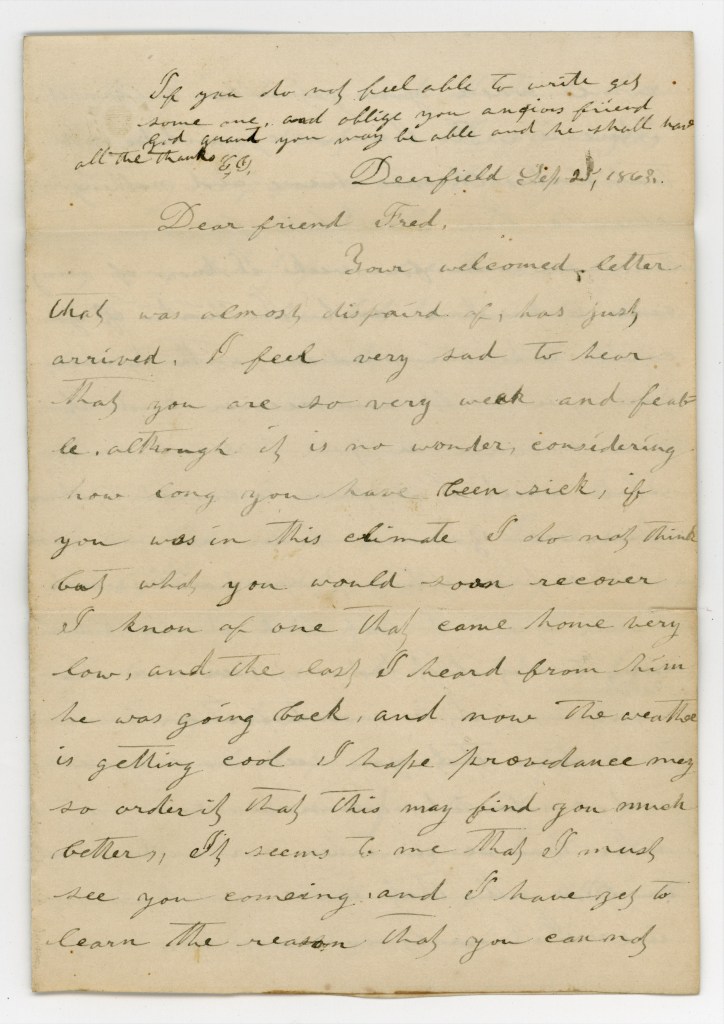 If you do not feel able to write get
some one, and oblige you anxious friend
God grant you may be able and he shall have
all the thanks
Deerfield Sep 1863.
Dear friend Fred,
Your welcomed letter
that was almost dispaird of, has just
arrived. I feel very sad to hear
that you are so very week and feab-
le, although it is no wonder, considering
how long you have been sick, if
you was in this climate I do not think
but what you would soon recover
I know of one that came home very
low, and the last I heard from him
he was going back, and now the weather
is getting cool I hope providance may
so order it that this may find you much
better, It seems to me that I must
see you comeing, and I have yet to
learn the reason that you can not